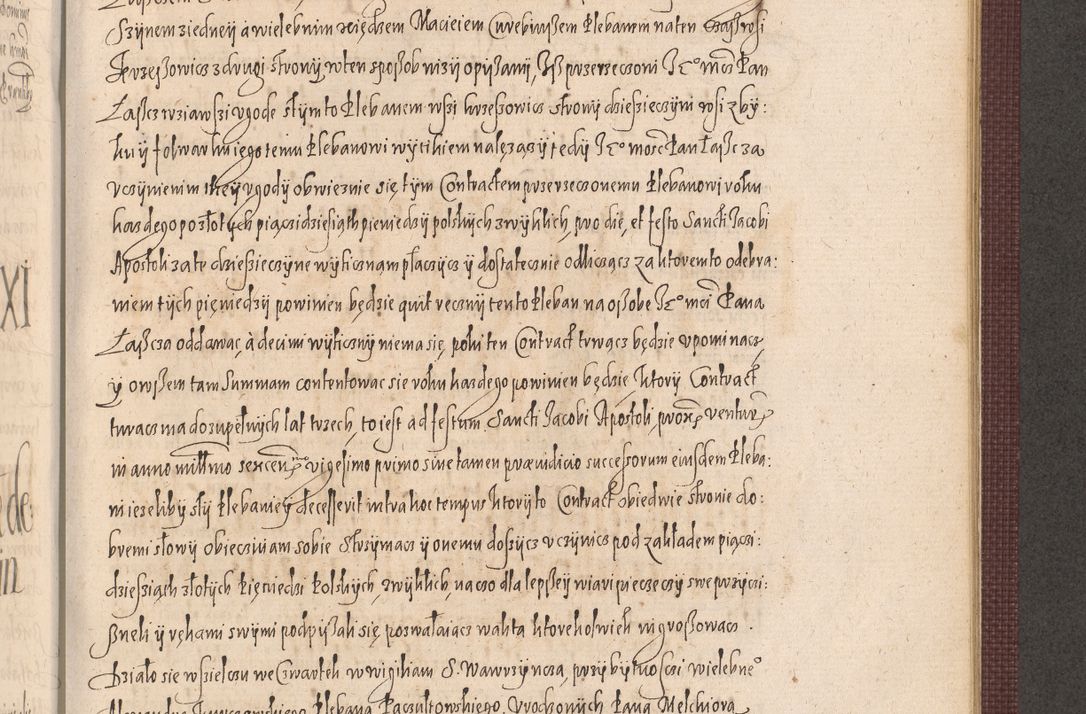 Szÿnem z iedneÿ à wielebnim xiędzem Macieiem Plebanem na ten czas wsi
Krzessowicz z drugi stronÿ, w ten sposob niżÿ opisanÿ, Iż przerzeczoni Ie° mcż Pan
Łasscz wziawssi ugode s tÿmto Plebanem wssi krzessowicz stronÿ dziesiecżyni wsi zbÿ:
ku ÿ folwarku iego temu Plebanowi wÿtikiem należączÿ tedÿ Ie° mosc Pan Łassc za
uczÿnienim they ugodÿ obwieznie się tÿm Contractem przerzeczonemu Plebanowi roku
kazdego po złotÿch pięczidziesiąth pieniedzÿ polskÿch zwÿklich, pro die, et festo Sancti Iacobi
Apostoli za te dziesięczÿne wÿticznam płaczÿcz ÿ dostatecznie odliczacz za ktorem to odebra:
niem tÿch pięniedzÿ powinien będzie quit recznÿ tento Pleban na osobe Ie° mci Pana
Łassza oddawac, à decimi wÿticznÿ nie ma się, poki ten Contract trwacz będzie upominacz,
ÿ owssem tam Summam contentowac sie roku kazdego powinien będzie, ktorÿ Contract
trwacz ma do zupełnÿch lat trzech, to iest ad festum Sancti Iacobi Apostoli, prox. ventur.
in anno millmo sexcen.mo vigesimo primo sine tamen praeiudicio successorum eiusdem Pleba:
ni iezeliby s tÿ Plebanieÿ decesserit intra hoc tempus ktorÿ to Contract obiedwie stronie do:
bremi słowÿ obieczuiam sobie strzÿmacz ÿ onemu dossÿcz uczÿnicz pod zakładem pięczi:
dziesiąth złotÿch Pięniedzi Polskÿch, zwÿklich, na czo dla lepsseÿ wiari pieczeczÿ swe przÿczi:
sneli ÿ rękami swÿmi podpissali się, pozwalaiącz w akta ktorekolwiek ingrossowacz.
Działo sie w Kielcziu we Czwartek w wigiliam S. Wawrzÿncza, przÿ bÿtnosczi wielebne°
Plebana Raczułtowskiego, Urodzonÿch Pana Melchiora